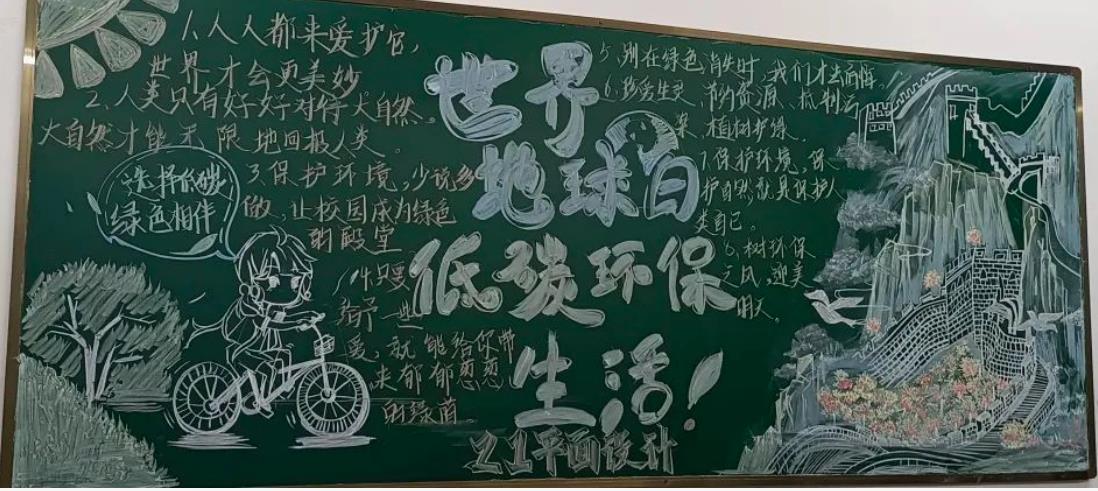 1.人人都来爱护它,
世界才会更美妙
2.人类只有好好对待大自然。
大自然才能无限地回报人类。
选择低碳
绿色相伴
3.保护环境,少说多
做,让校园成为绿色
的殿堂
你只要
给予一些
爱就能给你带
来郁郁葱葱
的
世界
地球日
低碳环保
生活!
21平面设计
5.别在绿色消失时,我们才去面悔。
6.珍爱生灵、节约资源、抵制污
染、植树护绿.
7.保护环境,保
护自然就是保护人
类自己。
树环保
之风,迎美
明天。